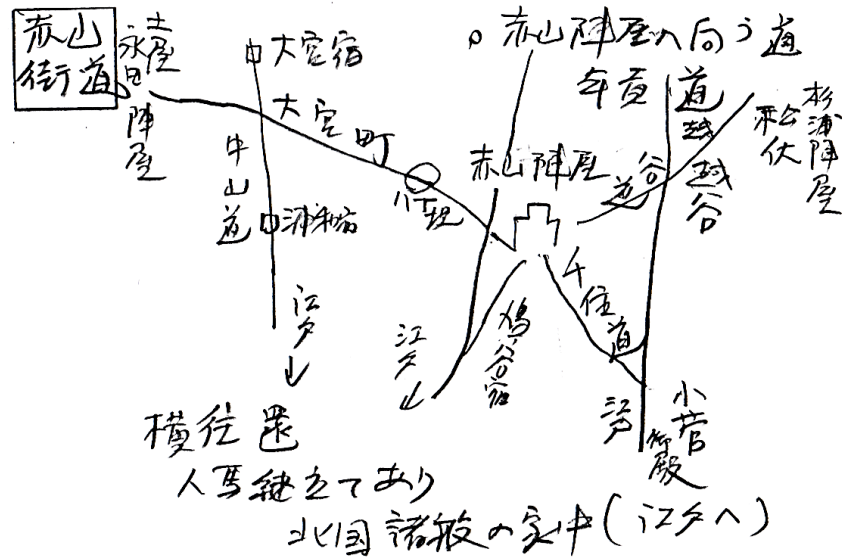 赤山
街道
土屋
永田
陣屋
大宮宿
大宮町
中山道
浦和宿
江戸
八丁
赤山陣屋へ向う道
年貢道
赤山陣屋
越谷道
越谷
松伏
杉浦陣屋
江戸
鳩ヶ谷宿
千住道
江戸
小菅
御殿
横往還
人馬継立てあり
北国諸般の家中(江戸へ)